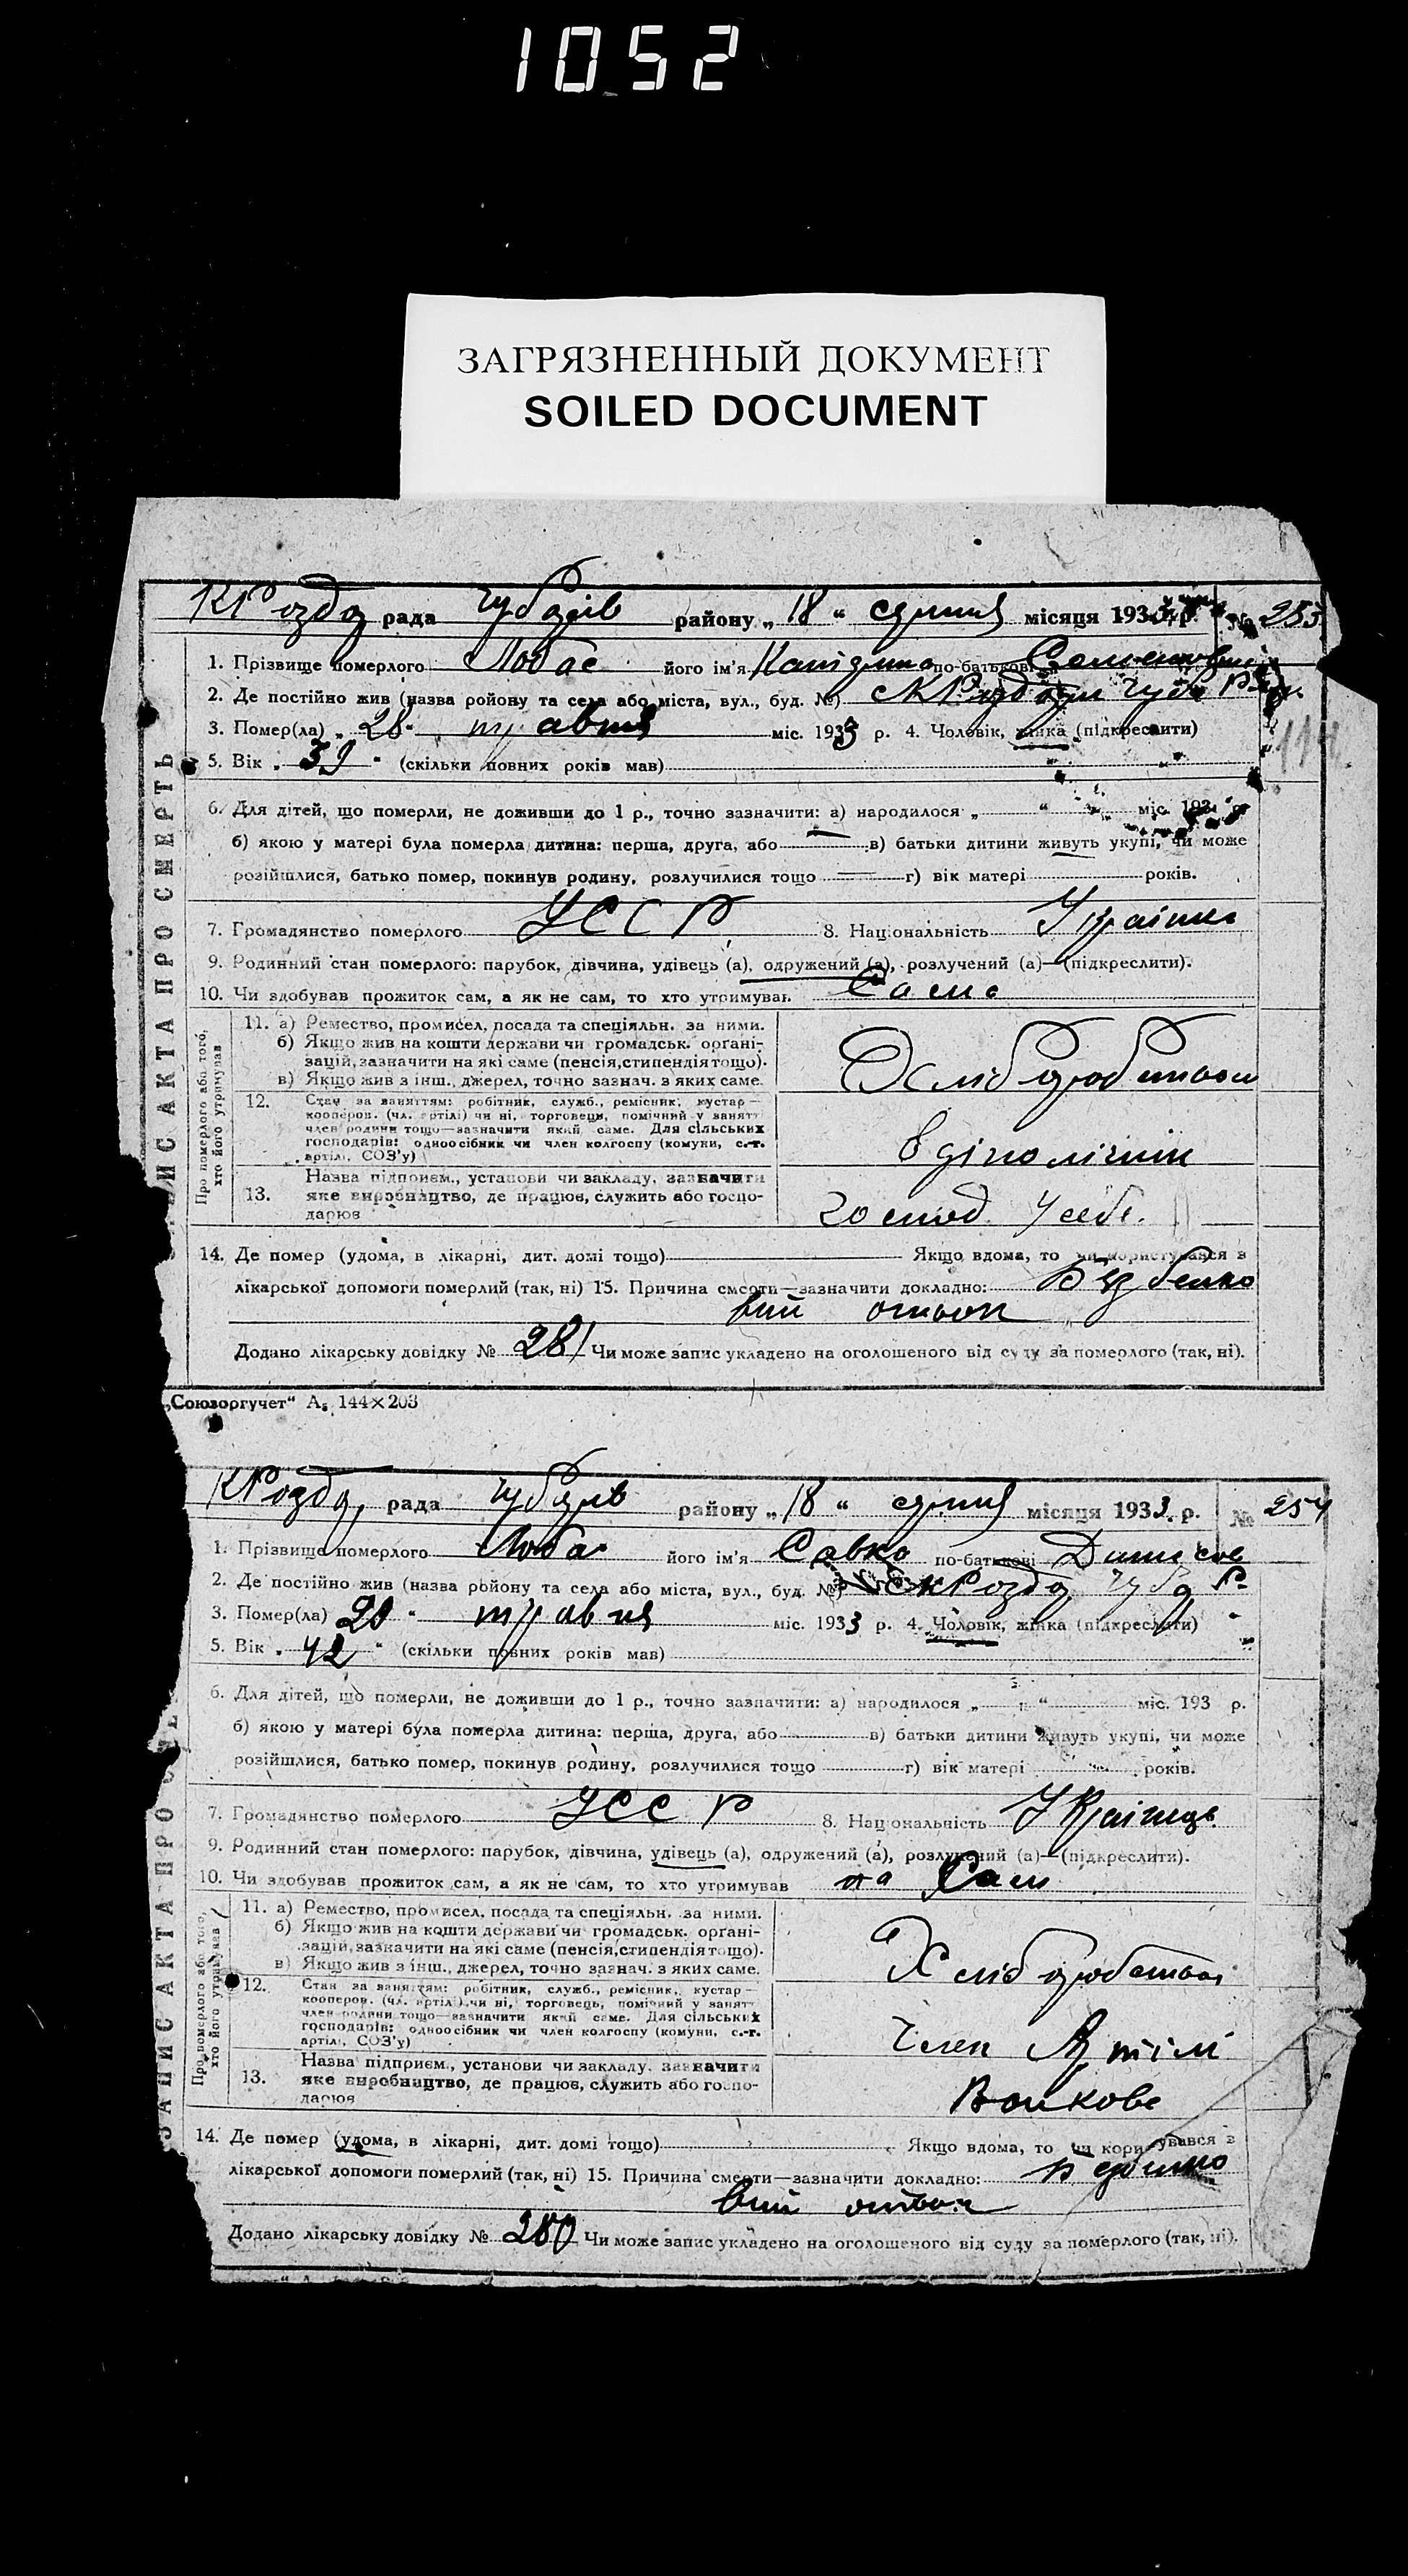 1052
ЗАГРЯЗНЕННЫЙ ДОКУМЕНТ
SOILED DOCUMENT
рада району „ 18 “ серпня місяця 1933 р. № 253
1. Прізвище померлого Лобас його ім'я по-батькові
2. Де постійно жив (назва ройону та села або міста, вул., буд. №)
3. Помер(ла) „ 28 “ травня міс. 1933 р. 4. Чоловік, жінка (підкреслити)
5. Вік „ 39 “ (скільки повних років мав)
6. Для дітей, що померли, не доживши до 1 р., точно зазначити: а) народилося „ “ міс. 193 р.
б) якою у матері була померла дитина: перша, друга, або в) батьки дитини живуть укупі, чи може
розійшлися, батько помер, покинув родину, розлучилися тощо г) вік матері років.
7. Громадянство померлого УССР 8. Національність Українка
9. Родинний стан померлого: парубок, дівчина, удівець (а), одружений (а), розлучений (а)—(підкреслити).
10. Чи здобував прожиток сам, а як не сам, то хто утримував Сама
ЗАПИС АКТА ПРО СМЕРТЬ
Про померлого або того, хто його утримував
11. а) Ремество, промисел, посада та спеціяльн. за ними.
б) Якщо жив на кошти держави чи громадськ. органі-
зацій, зазначити на які саме (пенсія, стипендія тощо).
в) Якщо жив з інш., джерел, точно зазнач. з яких саме.
12. Стан за заняттям: робітник, служб., ремісник, кустар—
кооперов. (чл. артілі) чи ні, торговець, помічний у занятт
член родини тощо—зазначити який саме. Для сільських
господарів: одноосібник чи член колгоспу (комуни, с.-г.
артілі, СОЗ'у)
13. Назва підприєм., установи чи закладу, зазначити
яке виробництво, де працює, служить або госпо-
дарює
господ. У себе.
14. Де помер (удома, в лікарні, дит. домі тощо) Якщо вдома, то чи користувався з
лікарської допомоги померлий (так, ні) 15. Причина смерти—зазначити докладно:
Додано лікарську довідку № 281 Чи може запис укладено на оголошеного від суду за померлого (так, ні).
„Союзоргучет“ А₅ 144×203
рада району „ 18 “ серпня місяця 1933 р. № 254
1. Прізвище померлого Лобас його ім'я Савко по-батькові Денисов
2. Де постійно жив (назва ройону та села або міста, вул., буд. №)
3. Помер(ла) 20 “ травня міс. 1933 р. 4. Чоловік, жінка (підкреслити)
5. Вік „ 42 “ (скільки повних років мав)
6. Для дітей, що померли, не доживши до 1 р., точно зазначити: а) народилося „ “ міс. 193 р.
б) якою у матері була померла дитина: перша, друга, або в) батьки дитини живуть укупі, чи може
розійшлися, батько помер, покинув родину, розлучилися тощо г) вік матері років.
7. Громадянство померлого УССР 8. Національність Українець
9. Родинний стан померлого: парубок, дівчина, удівець (а), одружений (а), розлучений (а)—(підкреслити).
10. Чи здобував прожиток сам, а як не сам, то хто утримував Сам
ЗАПИС АКТА ПРО
Про померлого або того, хто його утримував
11. а) Ремество, промисел, посада та спеціяльн. за ними.
б) Якщо жив на кошти держави чи громадськ. органі-
зацій, зазначити на які саме (пенсія, стипендія тощо).
в) Якщо жив з інш., джерел, точно зазнач. з яких саме.
12. Стан за заняттям: робітник, служб., ремісник, кустар—
кооперов. (чл. артілі) чи ні, торговець, помічний у занятт
член родини тощо—зазначити який саме. Для сільських
господарів: одноосібник чи член колгоспу (комуни, с.-г.
артілі, СОЗ'у)
Член Артілі
13. Назва підприєм., установи чи закладу, зазначити
яке виробництво, де працює, служить або госпо-
дарює
14. Де помер (удома, в лікарні, дит. домі тощо) Якщо вдома, то чи користувався з
лікарської допомоги померлий (так, ні) 15. Причина смерти—зазначити докладно:
Додано лікарську довідку № 280 Чи може запис укладено на оголошеного від суду за померлого (так, ні).